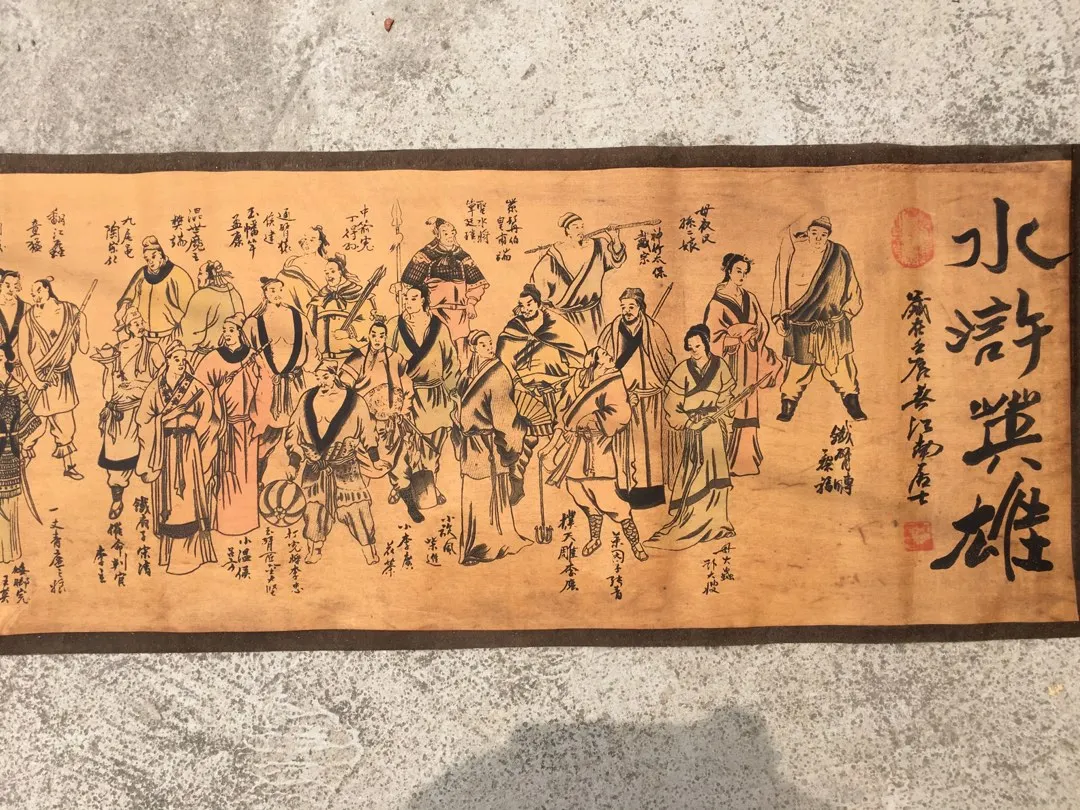 水滸英雄
鐵臂膊
蔡福
母夜叉
孫二娘
神行太保
戴宗
紫髯伯
皇甫端
聖水將
單廷珪
中箭虎
丁得孙
通臂猿
侯建
玉幡竿
孟康
混世魔王
樊瑞
九尾龟
陶宗旺
翻江蜃
童猛
母大虫
顾大嫂
菜园子张青
撲天雕李应
小旋风
柴進
小李廣
花荣
打虎将李忠
小温侯
吕方
鐵扇子宋清
催命判官
李立
一丈青扈三娘
矮脚虎
王英